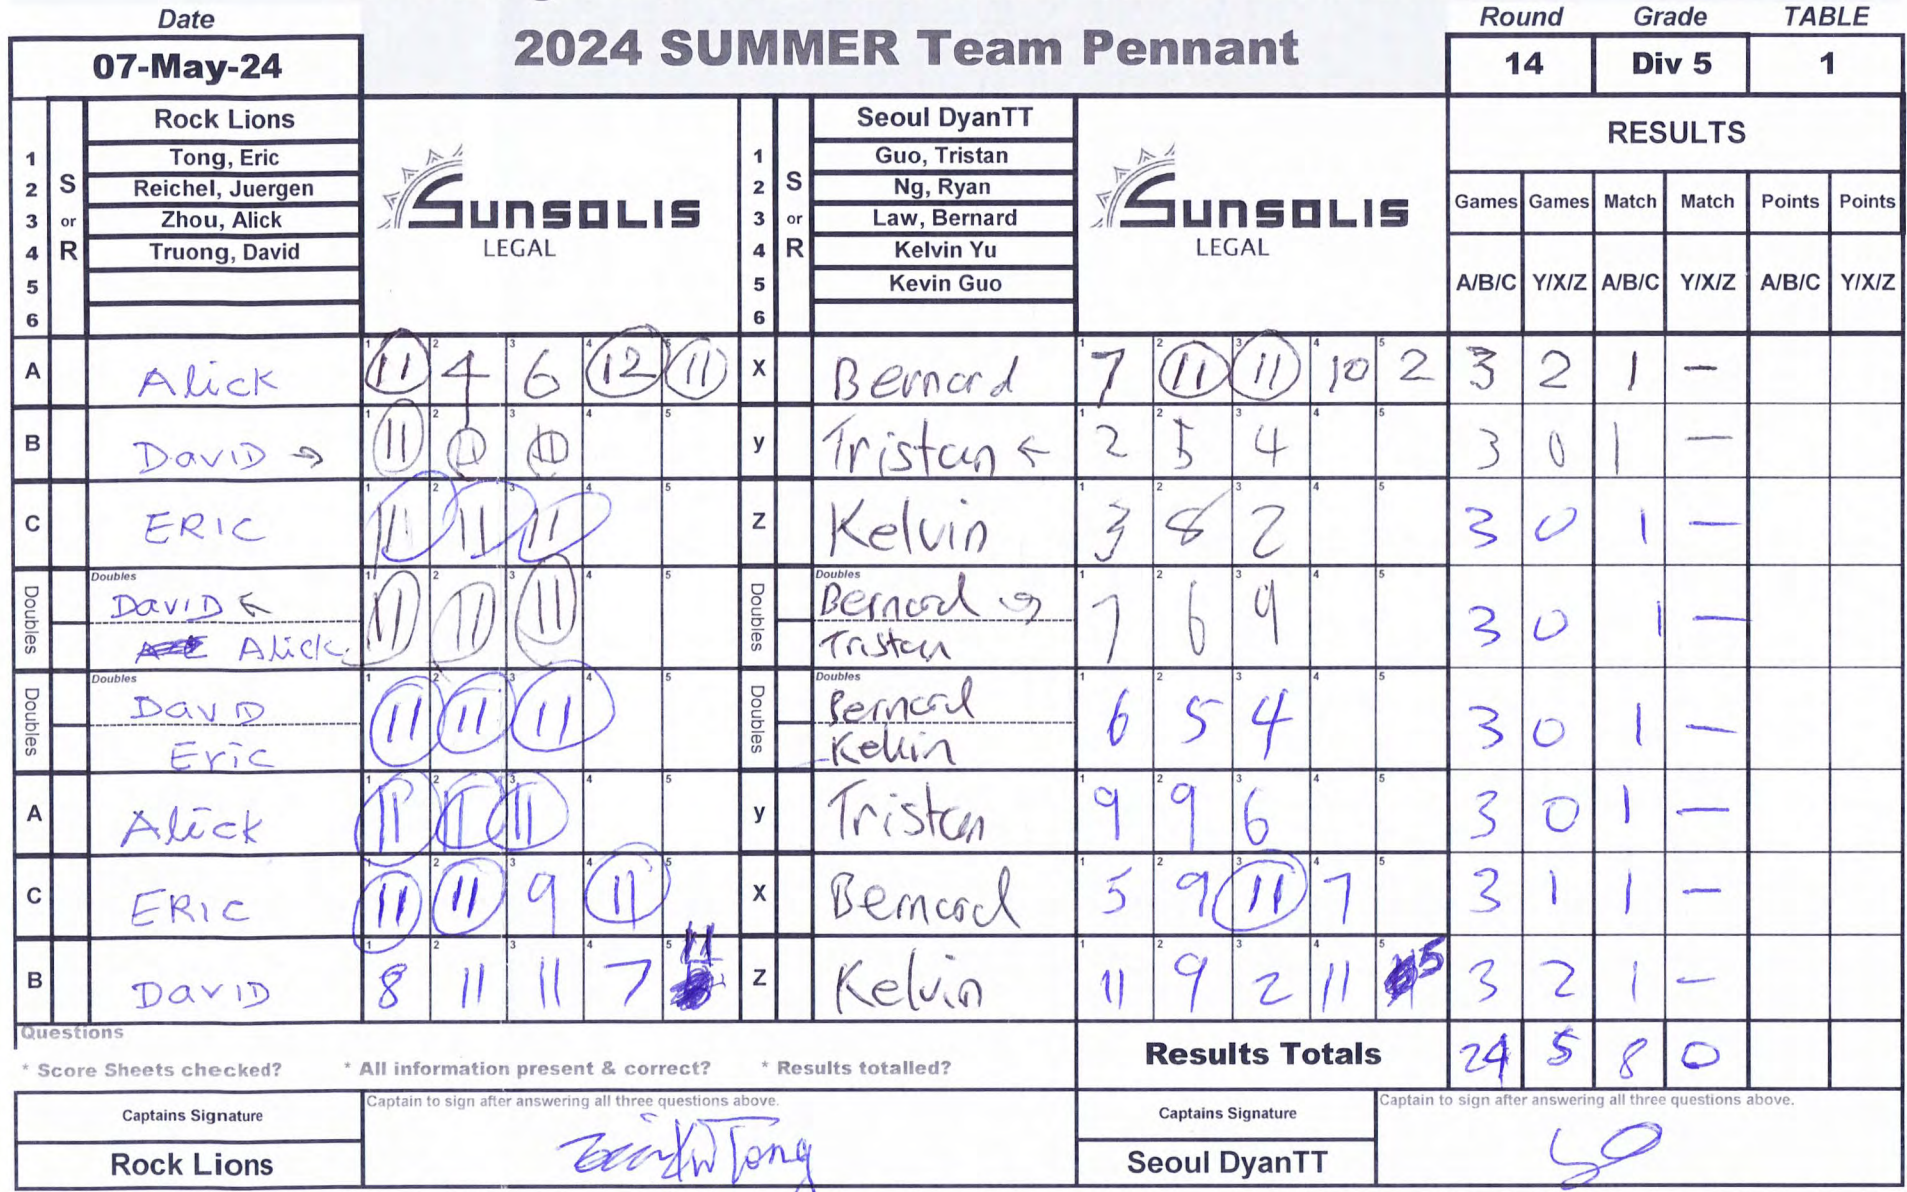 Date
2024 SUMMER Team Pennant
Round Grade TABLE
07-May-24
14 Div 5 1
Rock Lions
1 Tong, Eric
2 S Reichel, Juergen
3 or Zhou, Alick
4 R Truong, David
5
6
SUNSOLIS
LEGAL
Seoul DyanTT
1 Guo, Tristan
2 S Ng, Ryan
3 or Law, Bernard
4 R Kelvin Yu
5 Kevin Guo
6
SUNSOLIS
LEGAL
RESULTS
Games Games Match Match Points Points
A/B/C Y/X/Z A/B/C Y/X/Z A/B/C Y/X/Z
A Alick 11 4 6 12 11 X Bernard 7 11 11 10 2 3 2 1 —
B David → 11 11 11 y Tristan ← 2 5 4 3 0 1 —
C ERIC 11 11 11 Z Kelvin 3 8 2 3 0 1 —
Doubles Doubles David ← Alick 11 11 11 Doubles Doubles Bernard → Tristan 7 6 9 3 0 1 —
Doubles Doubles David Eric 11 11 11 Doubles Doubles Bernard Kelvin 6 5 4 3 0 1 —
A Alick 11 11 11 y Tristan 9 9 6 3 0 1 —
C ERIC 11 11 9 11 X Bernard 5 9 11 7 3 1 1 —
B David 8 11 11 7 11 Z Kelvin 11 9 2 11 5 3 2 1 —
Questions
* Score Sheets checked? * All information present & correct? * Results totalled?
Results Totals 24 5 8 0
Captains Signature
Captain to sign after answering all three questions above.
Captains Signature
Captain to sign after answering all three questions above.
Rock Lions
Seoul DyanTT